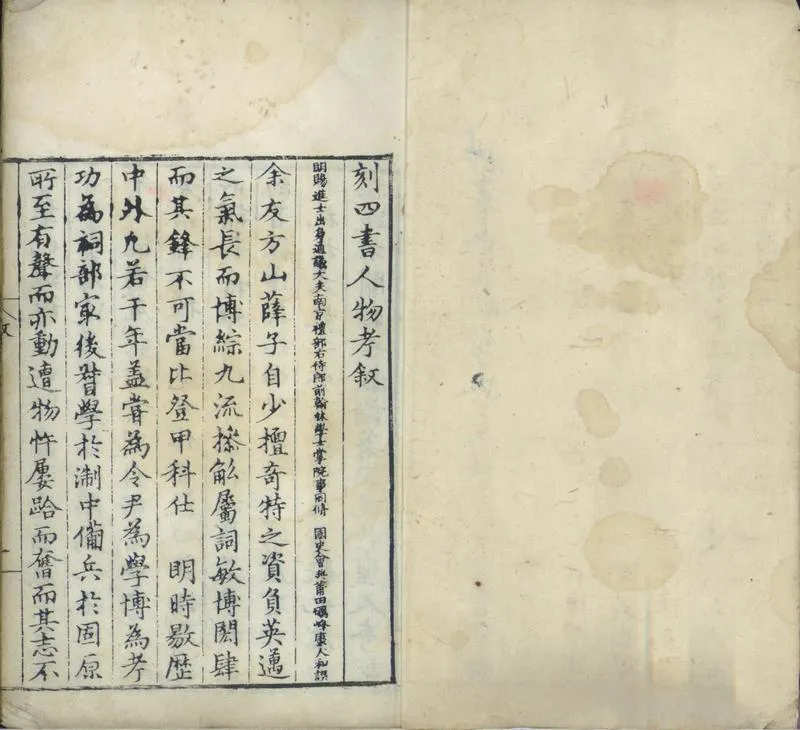 刻四書人物考叙
明賜進士出身通議大夫南京禮部右侍郎前翰林學士掌院事同脩 國史會典莆田礪峰康大和譔
余友方山薛子自少擅奇特之資負英邁
之氣長而博綜九流搽觚屬詞敏博閎肆
而其鋒不可當比登甲科仕 明時歇歷
中外凡若干年盖嘗為令尹為學博為考
功為祠部家後督學於淛中俻兵於固原
所至有聲而亦動遭物忤屢跲而奮而其志不